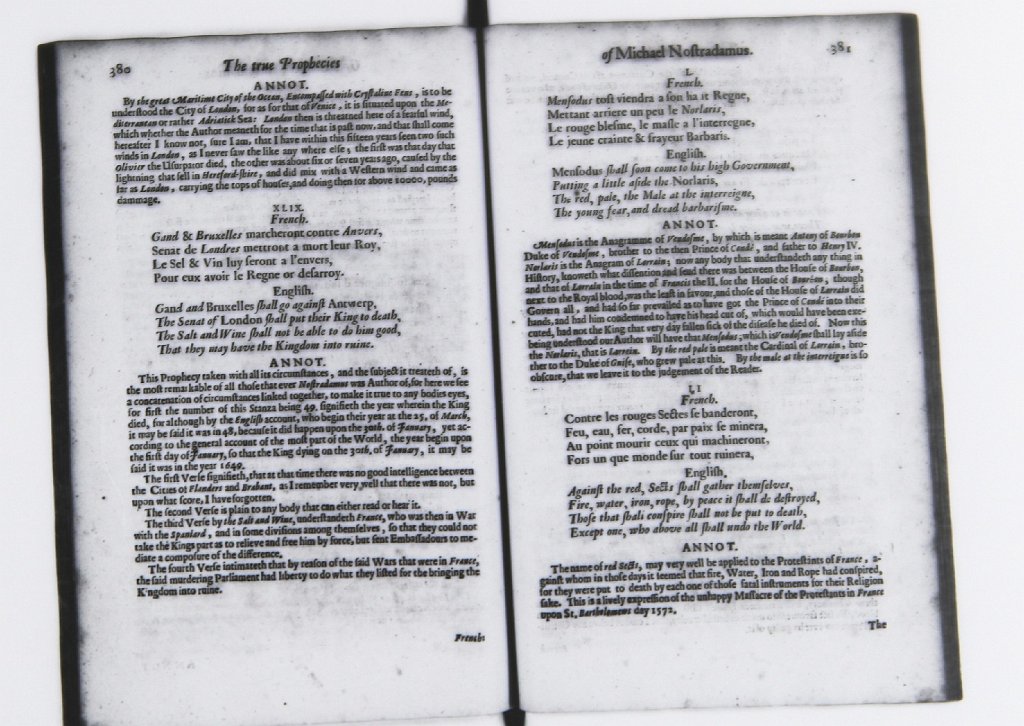 380
The true Prophecies
ANNOT.
By the great Maritime City of the Ocean, Encompassed with Crystaline Fens, is to be
understood the City of London, for as for that of Venice, it is situated upon the Me-
diterranean or rather Adriatick Sea: London then is threatned here of a fearful wind,
which whether the Author meaneth for the time that is past now, and that shall come
hereafter I know not, sure I am, that I have within this fifteen years seen two such
winds in London, as I never saw the like any where else; the first was that day that
Olivier the Usurpator died, the other was about six or seven years ago, caused by the
lightning that fell in Hereford-shire, and did mix with a Western wind and came as
far as London, carrying the tops of houses, and doing then for above 10000, pounds
dammage.
XLIX.
French.
Gand & Bruxelles marcheront contre Anvers,
Senat de Londres mettront a mort leur Roy,
Le Sel & Vin luy seront a l'envers,
Pour eux avoir le Regne or desarroy.
English.
Gand and Bruxelles shall go against Antwerp,
The Senat of London shall put their King to death,
The Salt and Wine shall not be able to do him good,
That they may have the Kingdom into ruine.
ANNOT.
This Prophecy taken with all its circumstances, and the subject it treateth of, is
the most remarkable of all those that ever Nostradamus was Author of, for here we see
a concatenation of circumstances linked together, to make it true to any bodies eyes,
for first the number of this Stanza being 49. signifieth the year wherein the King
died, for although by the English account, who begin their year at the 25, of March,
it may be said it was in 48, because it did happen upon the 30th. of January, yet ac-
cording to the general account of the most part of the World, the year begin upon
the first day of January, so that the King dying on the 30th, of January, it may be
said it was in the year 1649.
The first Verse signifieth, that at that time there was no good intelligence between
the Cities of Flanders and Brabant, as I remember very well that there was not, but
upon what score, I have forgotten.
The second Verse is plain to any body that can either read or hear it.
The third Verse by the Salt and Wine, understandeth France, who was then in War
with the Spaniard, and in some divisions among themselves, so that they could not
take the Kings part as to relieve and free him by force, but sent Embassadours to me-
diate a composure of the difference.
The fourth Verse intimateth that by reason of the said Wars that were in France,
the said murdering Parliament had liberty to do what they listed for the bringing the
Kingdom into ruine.
French:
of Michael Nostradamus.
381
L
French.
Mensodus tost viendra a son ha it Regne,
Mettant arriere un peu le Norlaris,
Le rouge blesme, le masle a l'interregne,
Le jeune crainte & frayeur Barbaris.
English.
Mensodus shall soon come to his high Government,
Putting a little aside the Norlaris,
The red, pale, the Male at the interreigne,
The young fear, and dread barbarisme.
ANNOT.
Mensodus is the Anagramme of Vendosme, by which is meant Antony of Bourbon
Duke of Vendosme, brother to the then Prince of Condè, and father to Henry IV.
Norlaris is the Anagram of Lorrain; now any body that understandeth any thing in
History, knoweth what dissention and feud there was between the House of Bourbon,
and that of Lorrain in the time of Francis the II, for the House of Bourbon, though
next to the Royal blood, was the least in favour, and those of the House of Lorrain did
Govern all, and had so far prevailed as to have got the Prince of Condè into their
hands, and him condemned to have his head cut of, which would have been exe-
cuted, had not the King that very day fallen sick of the disease he died of. Now this
being understood our Author will have that Mensodus, which is Vendosme shall lay aside
the Norlaris, that is Lorrain. By the red pale is meant the Cardinal of Lorrain, bro-
ther to the Duke of Guise, who grew pale at this. By the male at the interreigne is so
obscure, that we leave it to the judgement of the Reader.
LI
French.
Contre les rouges Sectes se banderont,
Feu, eau, fer, corde, par paix se minera,
Au point mourir ceux qui machineront,
Fors un que monde sur tout ruinera,
English.
Against the red, Sects shall gather themselves,
Fire, water, iron, rope, by peace it shall de destroyed,
Those that shall conspire shall not be put to death,
Except one, who above all shall undo the World.
ANNOT.
The name of red Sects, may very well be applied to the Protestants of France, a-
gainst whom in those days it seemed that fire, Water, Iron and Rope had conspired,
for they were put to death by each one of those fatal instruments for their Religion
sake. This is a lively expression of the unhappy Massacre of the Protestants in France
upon St. Bartholomews day 1572.
The